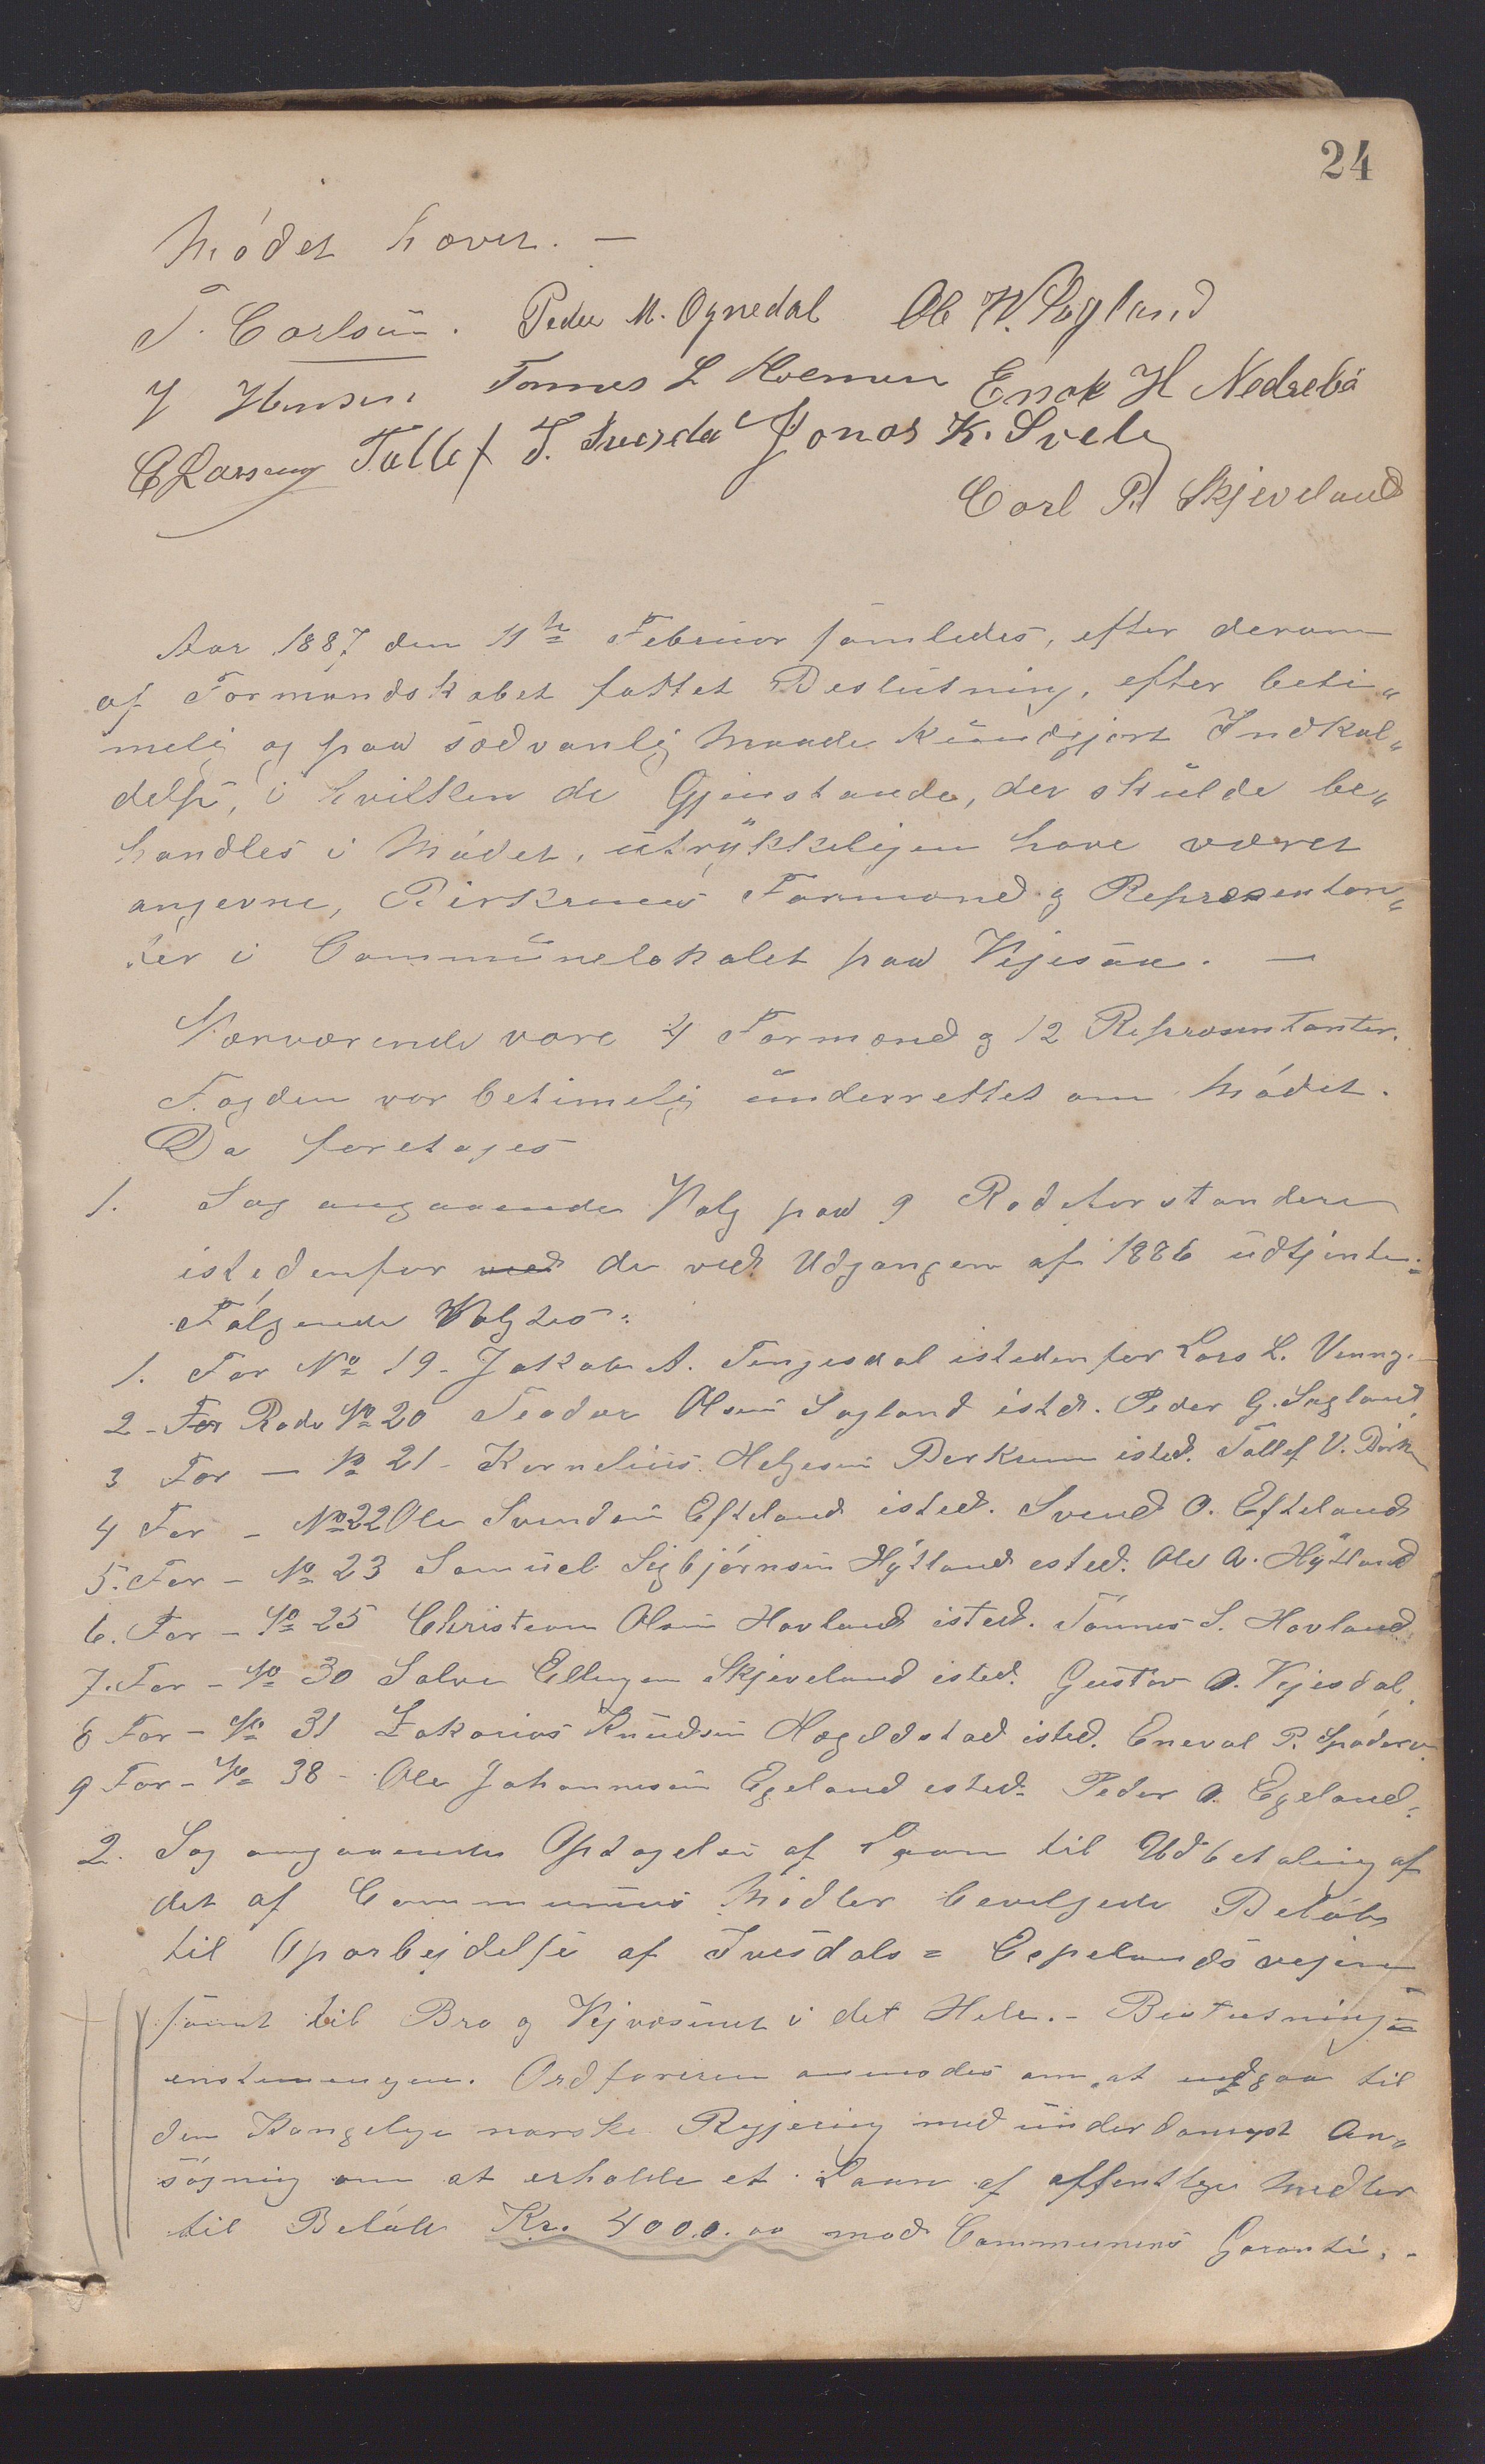 24
Mødet hæves. —
T. Carlsen. Peder M. Ognedal Ole W. Sagland
J Hansen Tønnes L Hoeman Enok H Nedrebø
C Larsen Tollef T. Svesdal Jonas K. Svele
Carl P. Skjeveland
Aar 1887 den 11te Februar samledes, efter derom
af Formandskabet fattet Beslutning, efter beti„
melig og paa sædvanlig Maade kundgjort Indkal„
delse, i hvilken de Gjenstande, der skulde be„
handles i Mødet, utrykkeligen have været
angevne, Birkrems Formænd og Repræsentan„
ter i Communelokalet paa Vigesaa. —
Nærværende vare 4 Formænd og 12 Repræsentanter.
Fogden var betimelig underrettet om Mødet.
Da foretoges
1. Sag angaaende Valg paa 9 Rodeforstandere
istedenfor ved de ved Udgangen af 1886 udtjente.
Følgende Valgtes:
1. For No 19 - Jakob A. Tengesdal istedenfor Lars L. Venng.
2 - For Rode No 20 Teodor Olsen Sagland isted. Peder G. Sagland
3 For — No 21 - Kornelius Helgesen Berkrem isted. Tollef V. Birk
4 For - No 22 Ole Svendsen Efteland isted. Svend O. Efteland
5. For - No 23 Samuel Sigbjørnsen Hytland isted. Ole A. Hytland
6. For - No 25 Christian Olsen Hovland isted. Tønnes S. Hovland
7. For - No 30 Salve Ellingsen Skjeveland isted. Gustav O. Vigesdal
8 For - No 31 Zakarias Knudsen Hægelstad isted. Eneval P.
9 For - No 38 - Ole Johannesen Egeland isted. Peder O. Egeland.
2. Sag angaaende Optagelse af Laan til Udbetaling af
det af Communens Midler bevilgede Beløb
til Oparbejdelse af Ivesdals = Espelandsvejen
samt til Bro og Vejvæsenet i det Hele. - Beslutning =
enstemmigen. Ordføreren anmodes om at indgaa til
den Kongelige norske Regjering med underdanigst An„
søgning om at erholde et Laan af offentlige Midler
til Beløb Kr. 4000.00 mod Communens Garanti. -